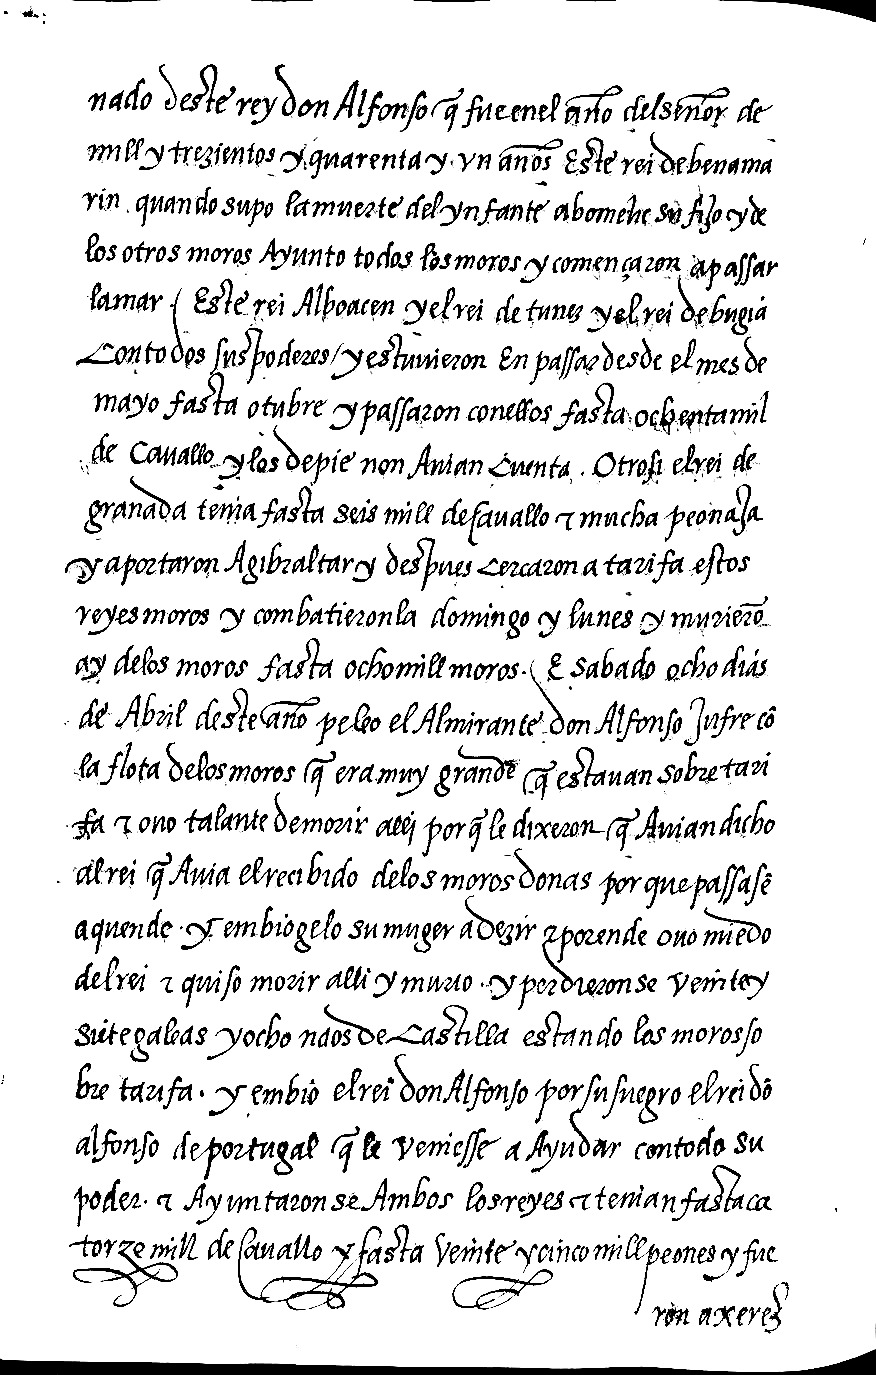 nado deste rey don Alfonso q̃ fue enel año del señor de
mill y trezientos y quarenta y vn años Este rei de benama
rin quando supo la muerte del ynfante abomelic su fijo y de
los otros moros Ayunto todos los moros y començaron a passar
la mar / Este rei Alboacen y el rei de tunez y el rei de bugia
Con todos sus poderes / y estuuieron En passar desde el mes de
mayo fasta otubre y passaron conellos fasta ochenta mil
de Cauallo y los de pie non Auian Cuenta . Otrosi el rei de
granada tenia fasta seis mill de cauallo τ mucha peonaja
y aportaron A gibraltar y despues cercaron a tarifa estos
reyes moros y combatieronla domingo y lunes y murierõ
ay delos moros fasta ocho mill moros . / E sabado ocho dias
de Abril deste año peleo el Almirante don Alfonso Jufre cõ
la flota delos moros q̃ era muy grande q̃ estauan sobre tari
fa τ ouo talante de morir alli por q̃ le dixeron q̃ Auian dicho
al rei q̃ Auia el recibido delos moros donas por que passasẽ
aquende . y embiogelo su muger a dezir τ porende ouo miedo
del rei τ quiso morir alli y murio . y perdieronse veinte y
siete galeas y ocho naos de Castilla estando los moros so
bre tarifa . y embio el rei don Alfonso por su suegro el rei dõ
alfonso de portugal q̃ le veniesse a Ayudar con todo su
poder . τ Ayuntaronse Ambos los reyes τ tenian fasta ca
torze mill de Cauallo y fasta veinte y cinco mill peones y fue
ron a xerez